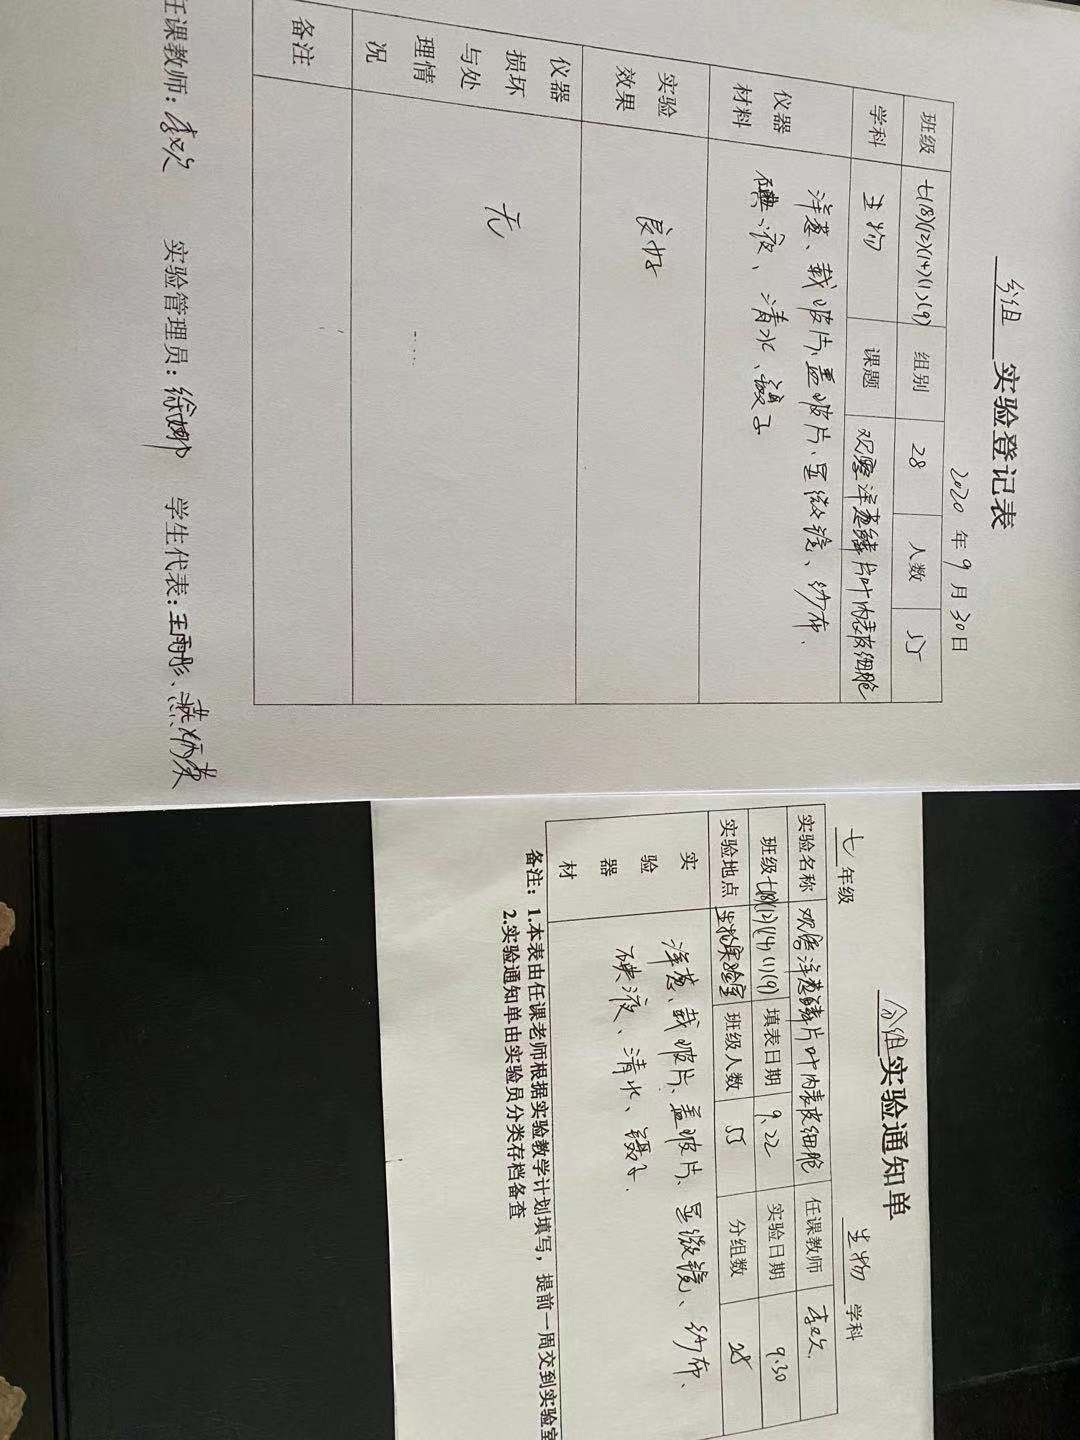 分组 实验登记表
2020 年 9 月 30 日
班级 七(8)(12)(14)(1)(9) 组别 28 人数 55
学科 生物 课题 观察洋葱鳞片叶内表皮细胞
仪器材料 洋葱、载玻片、盖玻片、显微镜、纱布、
碘液、清水、镊子
实验效果 良好
仪器损坏与处理情况 无
备注
任课教师: 李欢 实验管理员: 徐娜 学生代表: 王雨彤、
分组实验通知单
七 年级 生物 学科
实验名称 观察洋葱鳞片叶内表皮细胞 任课教师 李欢
班级 七(8)(12)(14)(1)(9) 填表日期 9.22 实验日期 9.30
实验地点 生物实验室 班级人数 55 分组数 28
实验器材 洋葱、载玻片、盖玻片、显微镜、纱布、
碘液、清水、镊子.
备注: 1.本表由任课老师根据实验教学计划填写，提前一周交到实验室
2.实验通知单由实验员分类存档备查